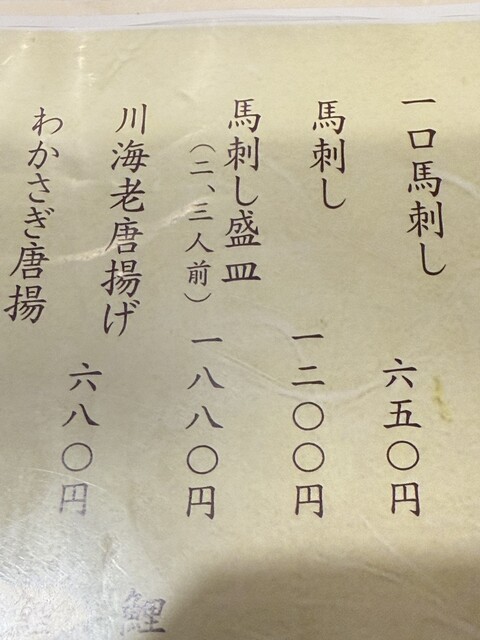 一口馬刺し 六五〇円
馬刺し 一二〇〇円
馬刺し盛皿 一八八〇円
(二、三人前)
川海老唐揚げ 六八〇円
わかさぎ唐揚
鯉